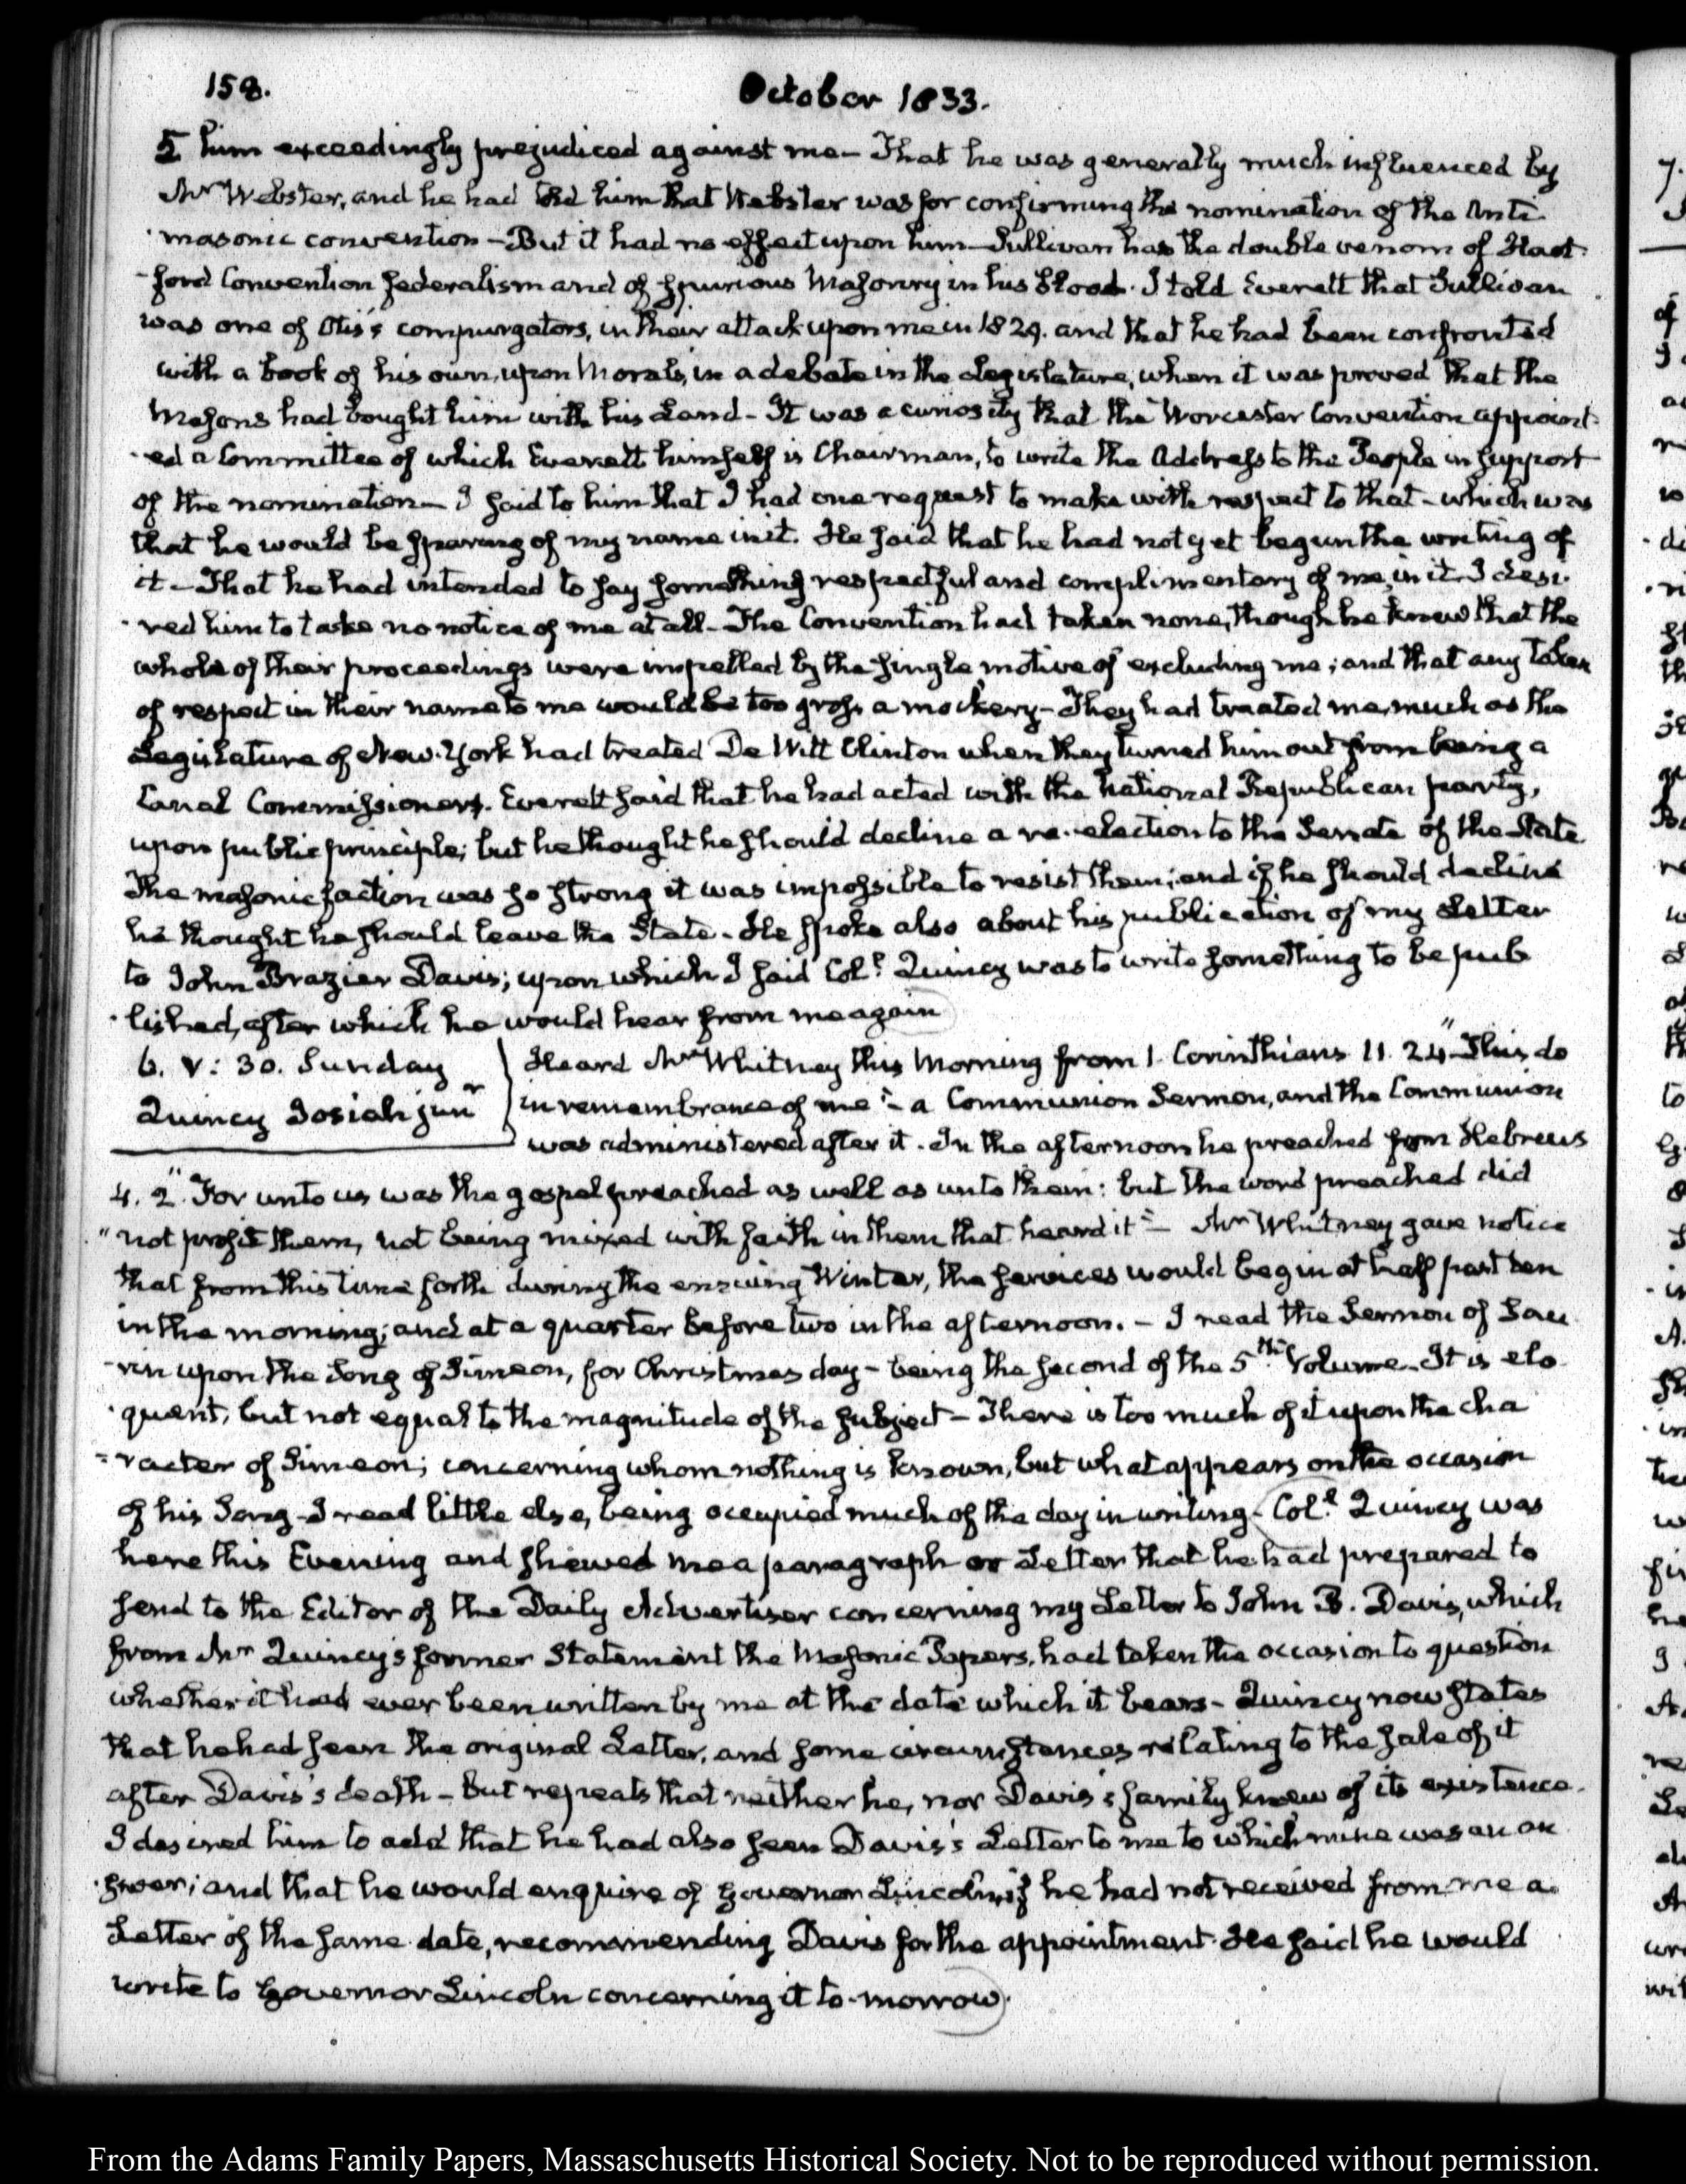 158.
October 1833.
5 him exceedingly prejudiced against me — That he was generally much influenced by
Mr Webster, and he had told him that Webster was for confirming the nomination of the Anti
-masonic convention — But it had no effect upon him — Sullivan has the double venom of Hart-
-ford Convention federalism and of spurious Masonry in his blood. I told Everett that Sullivan
was one of Otis's compurgators, in their attack upon me in 1829. and that he had been confronted
with a book of his own, upon Morals, in a debate in the Legislature, when it was proved that the
Masons had bought him with his Land — It was a curiosity that the Worcester Convention appoint-
-ed a Committee of which Everett himself is Chairman, to write the Address to the People in support
of the nomination — I said to him that I had one request to make with respect to that — which was
that he would be sparing of my name in it. He said that he had not yet begun the writing of
it — That he had intended to say something respectful and complimentary of me in it. I desi-
-red him to take no notice of me at all — The Convention had taken none, though he knew that the
whole of their proceedings were impelled by the single motive of excluding me; and that any token
of respect in their name to me would be too gross a mockery — They had treated me, much as the
Legislature of New-York had treated De Witt Clinton when they turned him out from being a
Canal Commissioner. Everett said that he had acted with the National Republican party,
upon public principle; but he thought he should decline a re-election to the Senate of the State
The masonic faction was so strong it was impossible to resist them; and if he should decline
he thought he should leave the State — He spoke also about his publication of my Letter
to John Brazier Davis; upon which I said Coll. Quincy was to write something to be pub
-lished, after which he would hear from me again
6. V: 30. Sunday
Quincy Josiah junr
Heard Mr Whitney this Morning from 1. Corinthians 11. 24 "This do
in remembrance of me" — a Communion Sermon, and the Communion
was administered after it. In the afternoon he preached from Hebrews
4. 2. "For unto us was the gospel preached as well as unto them: but the word preached did
"not profit them, not being mixed with faith in them that heard it" — Mr Whitney gave notice
that from this time forth during the ensuing Winter, the services would begin at half past ten
in the morning; and at a quarter before two in the afternoon. — I read the Sermon of Sau
-rin upon the Song of Simeon, for Christmas day — being the second of the 5th. Volume — It is elo
-quent, but not equal to the magnitude of the subject — There is too much of it upon the cha
-racter of Simeon; concerning whom nothing is known, but what appears on the occasion
of his Song — I read little else, being occupied much of the day in writing. Coll. Quincy was
here this Evening and shewed me a paragraph or Letter that he had prepared to
send to the Editor of the Daily Advertiser concerning my Letter to John B. Davis, which
from Mr Quincy's former Statement the Masonic Papers, had taken the occasion to question
whether it had ever been written by me at the date which it bears — Quincy now states
that he had seen the original Letter, and some circumstances relating to the sale of it
after Davis's death — but repeats that neither he, nor Davis's family knew of its existence.
I desired him to add that he had also seen Davis's Letter to me to which mine was an an
-swer; and that he would enquire of Governor Lincoln, if he had not received from me a
Letter of the same date, recommending Davis for the appointment. He said he would
write to Governor Lincoln concerning it to-morrow.
From the Adams Family Papers, Massachusetts Historical Society. Not to be reproduced without permission.